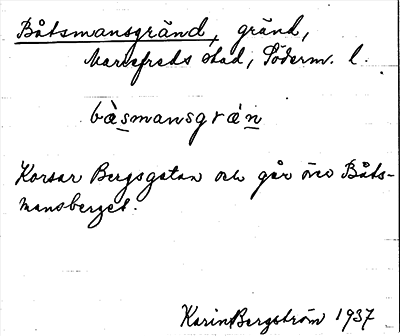 Båtsmansgränd, gränd,
Mariefreds stad, Söderm. l.
bàsmansgrán
Korsar Bergsgatan och går över Båts-
mansberget.
Karin Bergström 1937